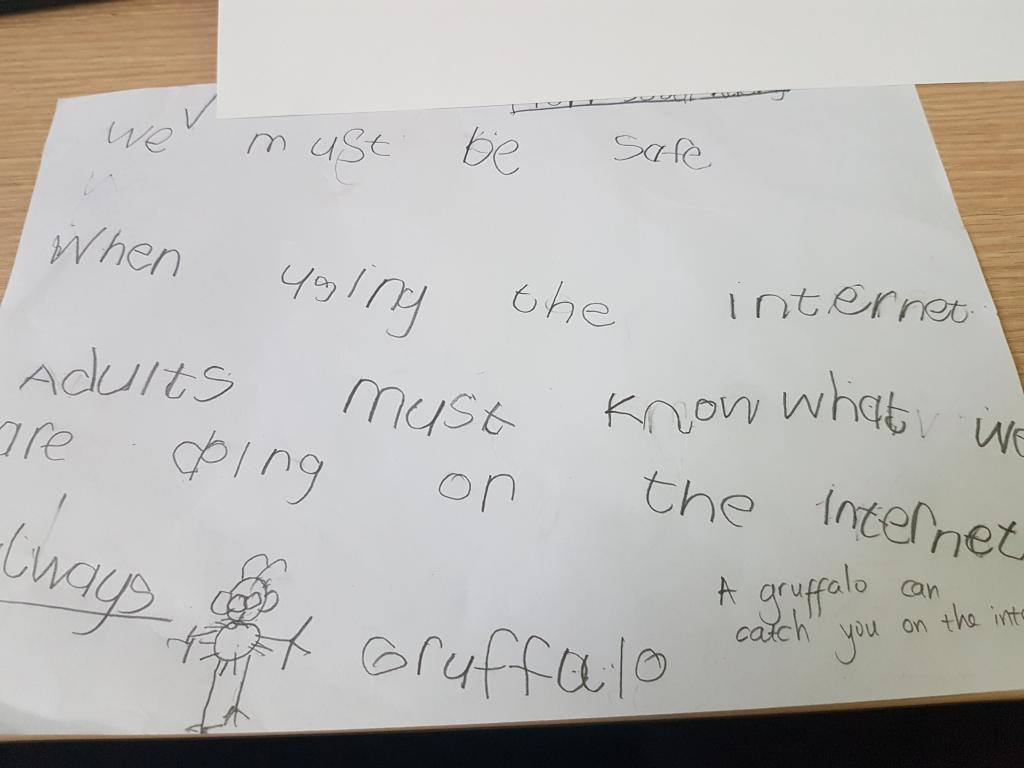 we must be safe
When using the internet
Adults must know what we
are doing on the internet
always
Gruffalo
A gruffalo can
catch you on the inte